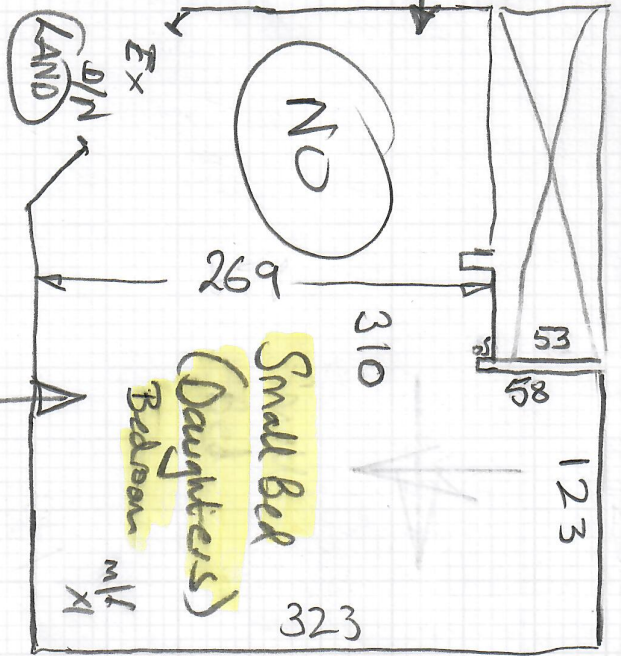 LAND
D/N
Ex
NO
269
310
53
58
123
Small Bed
(Daughters)
Bedroom
323